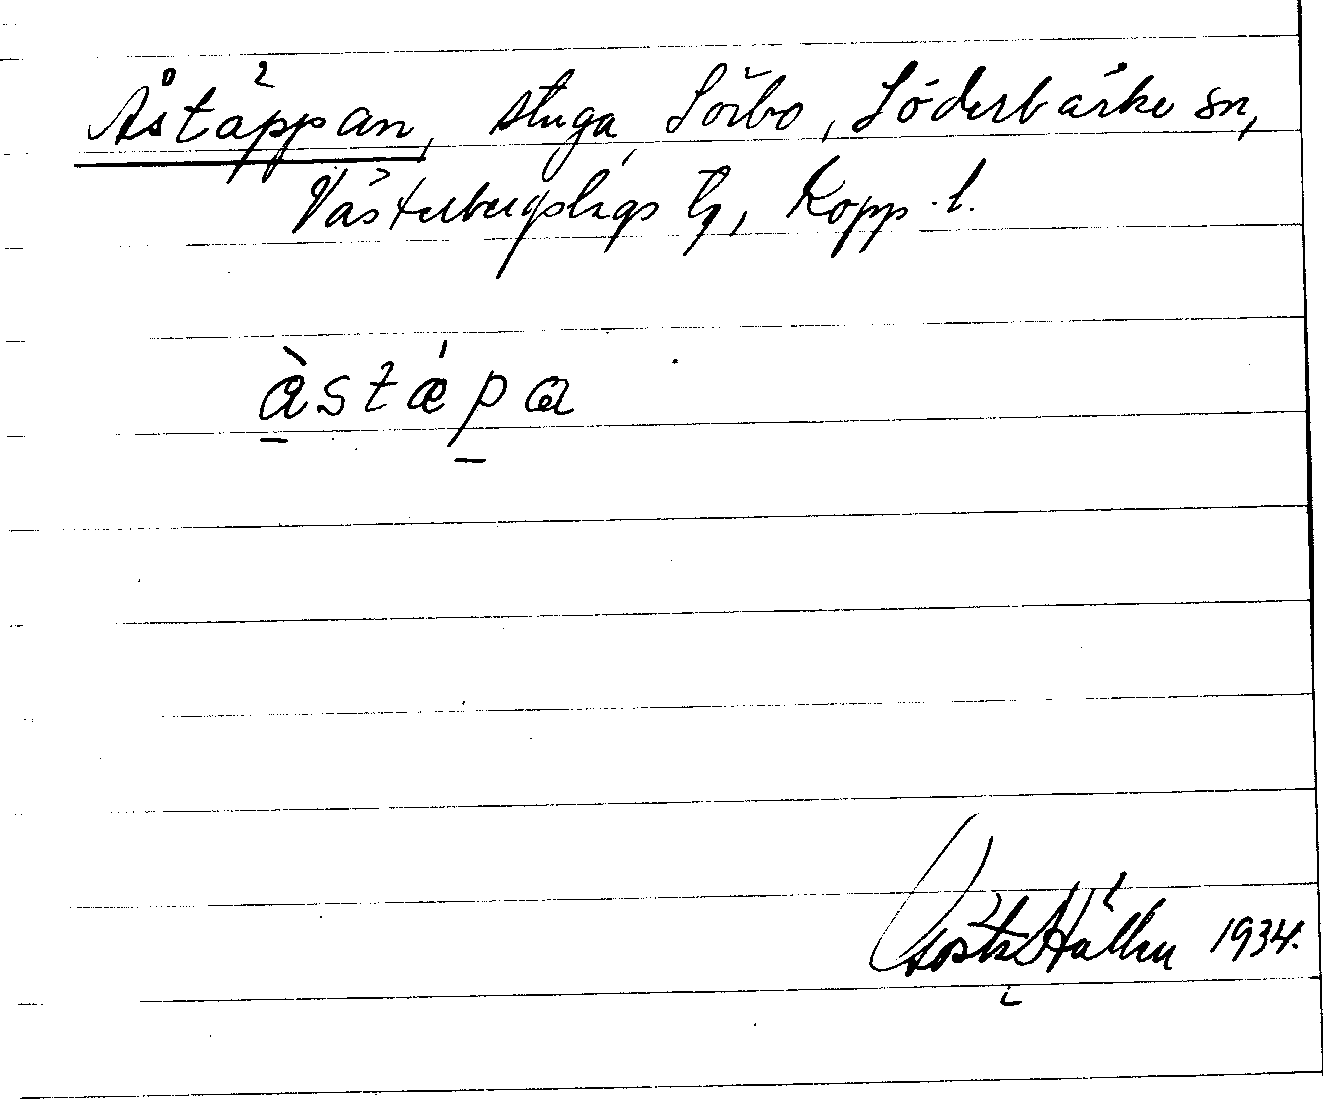 Åstäppan, stuga, Sörbo, Söderbärke sn,
Västerbergslags tg, Kopp. l.
àstǽpa
Gösta Hallén 1934.